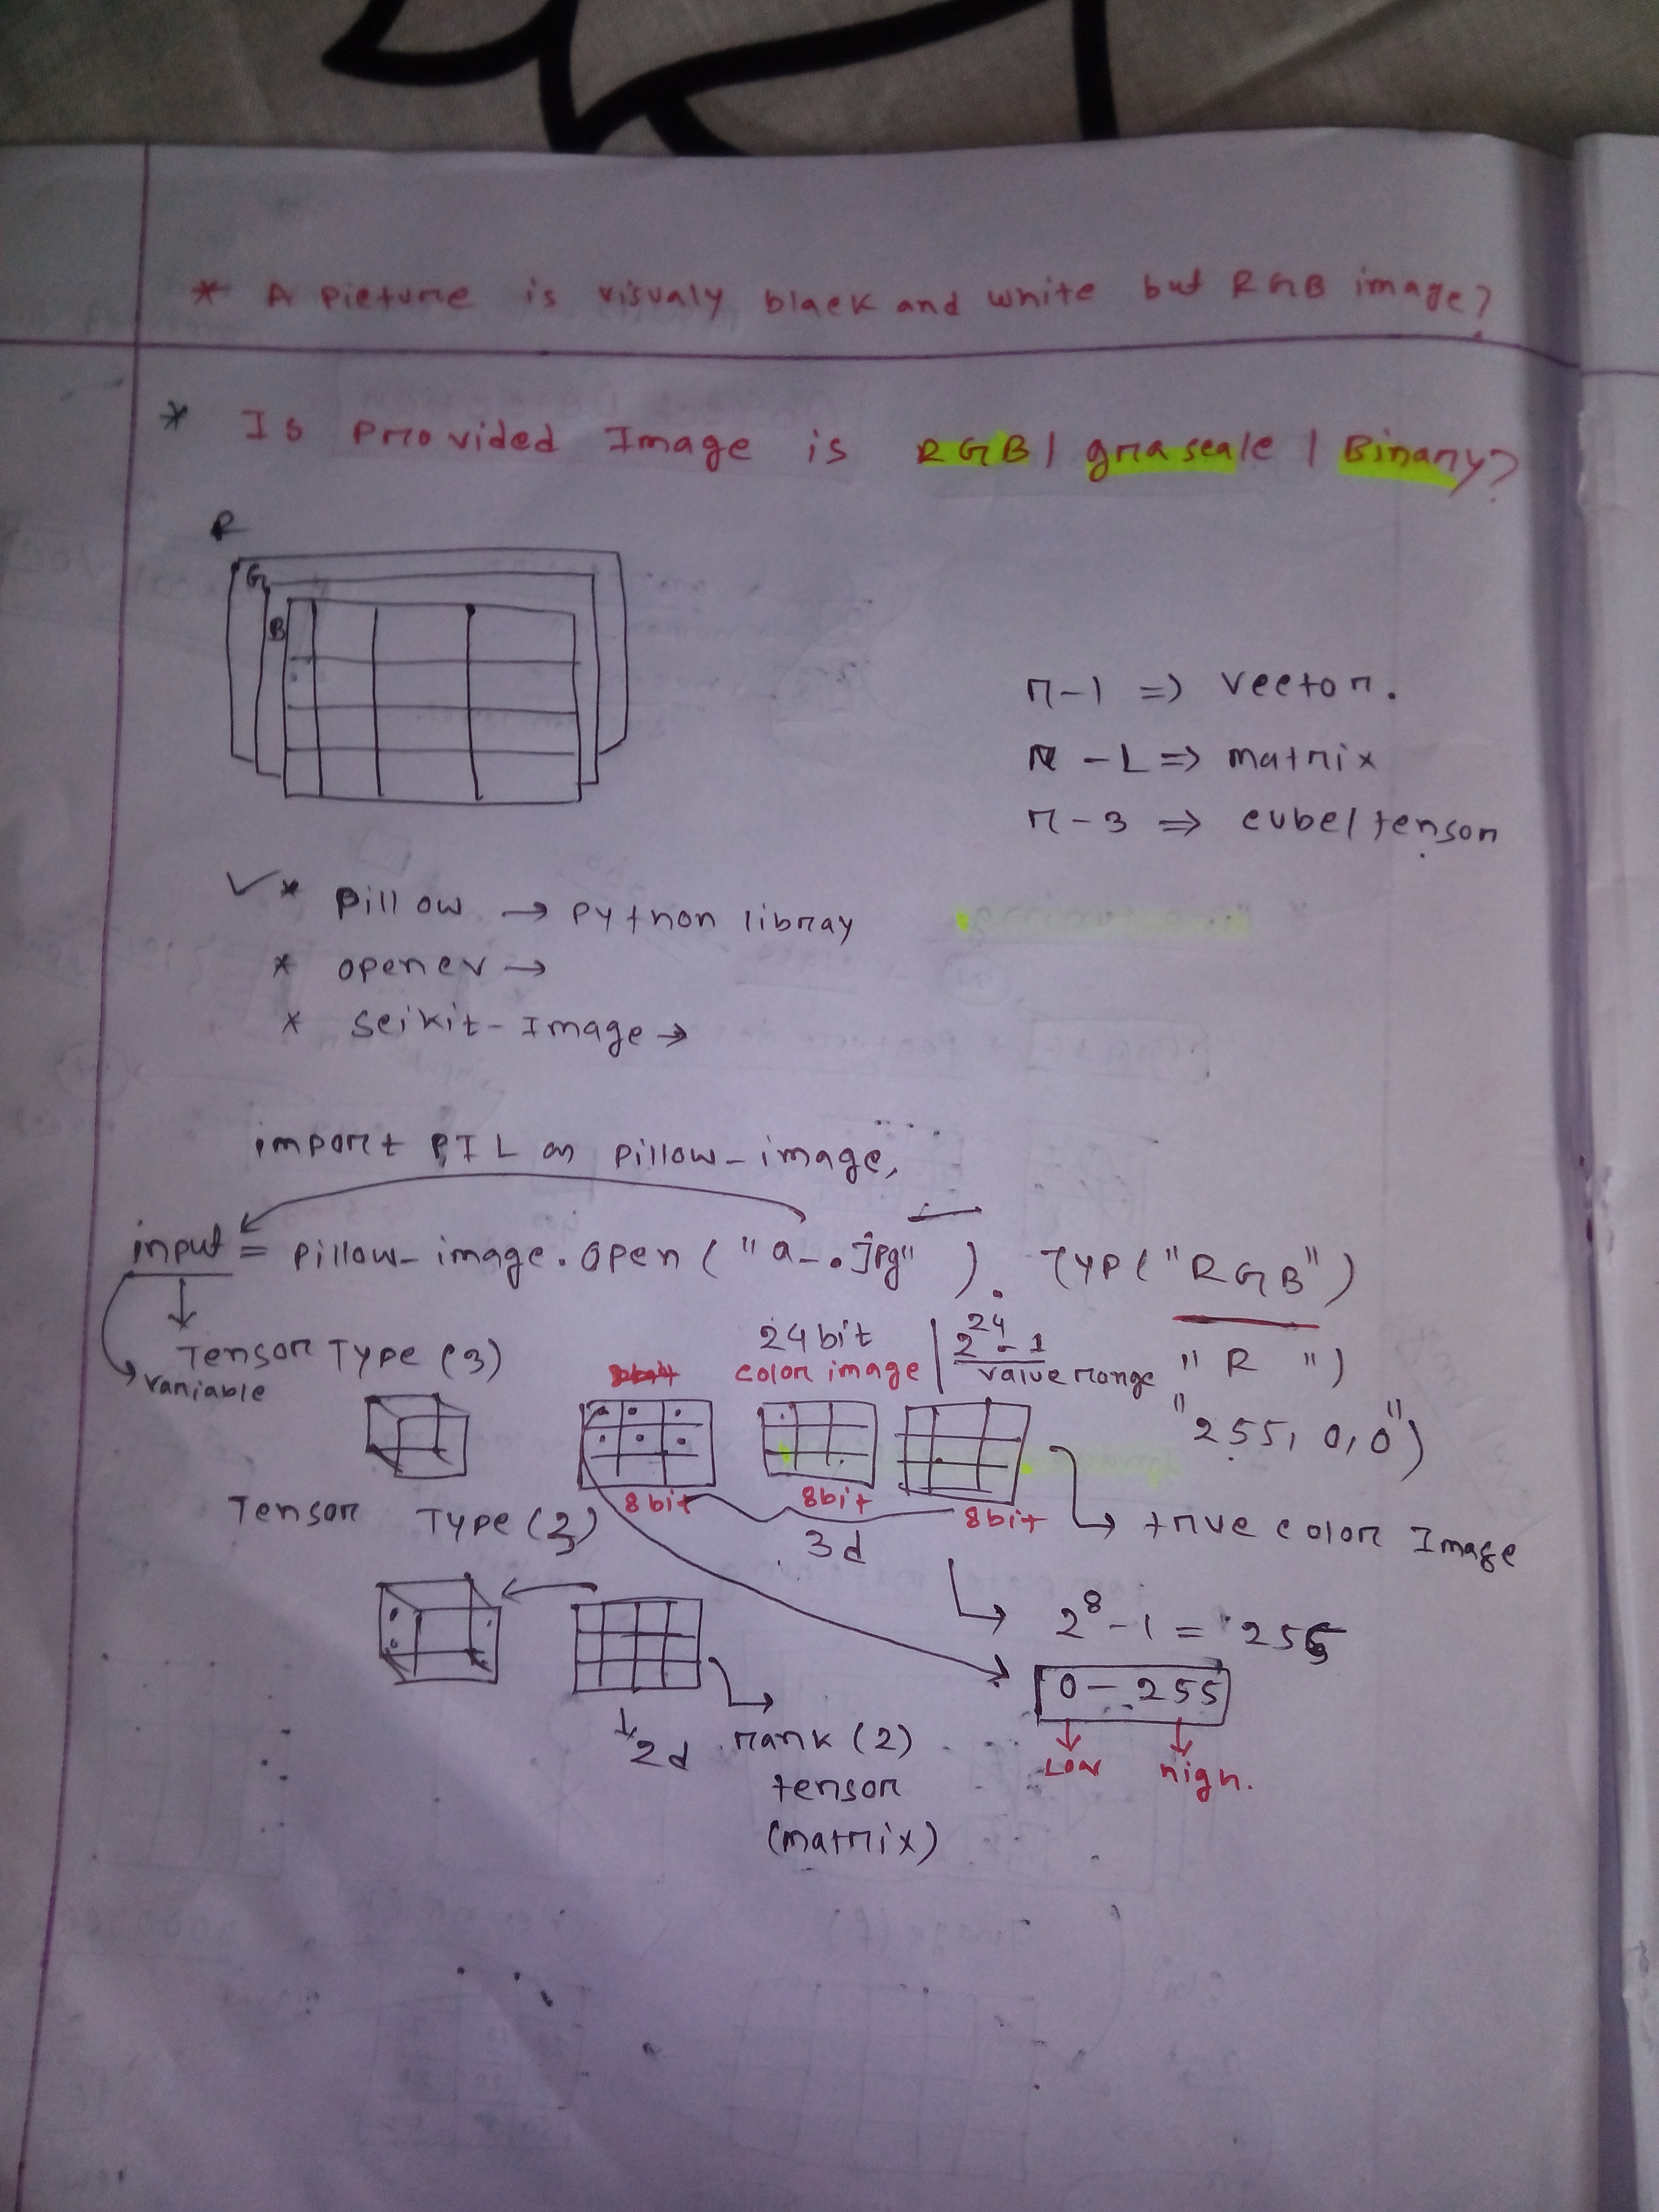 * A picture is visualy black and white but RGB image?
* Is Provided Image is RGB | grascale | Binary?
R
G
B
r-1 => vector.
R-2 => matrix
r-3 => cube/tensor
✓* pillow → python libray
* opencv →
* scikit-Image →
import PIL as pillow-image,
input = pillow-image.open("a-.jpg"). Typ("RGB")
Tensor Type (3)
variable
24bit
color image | 2^24-1
value range
"R")
"255, 0, 0")
8bit 8bit 8bit
3d
true color Image
Tensor Type (2)
2^8-1 = 255
0-255
Low high.
2d
rank (2)
tensor
(matrix)